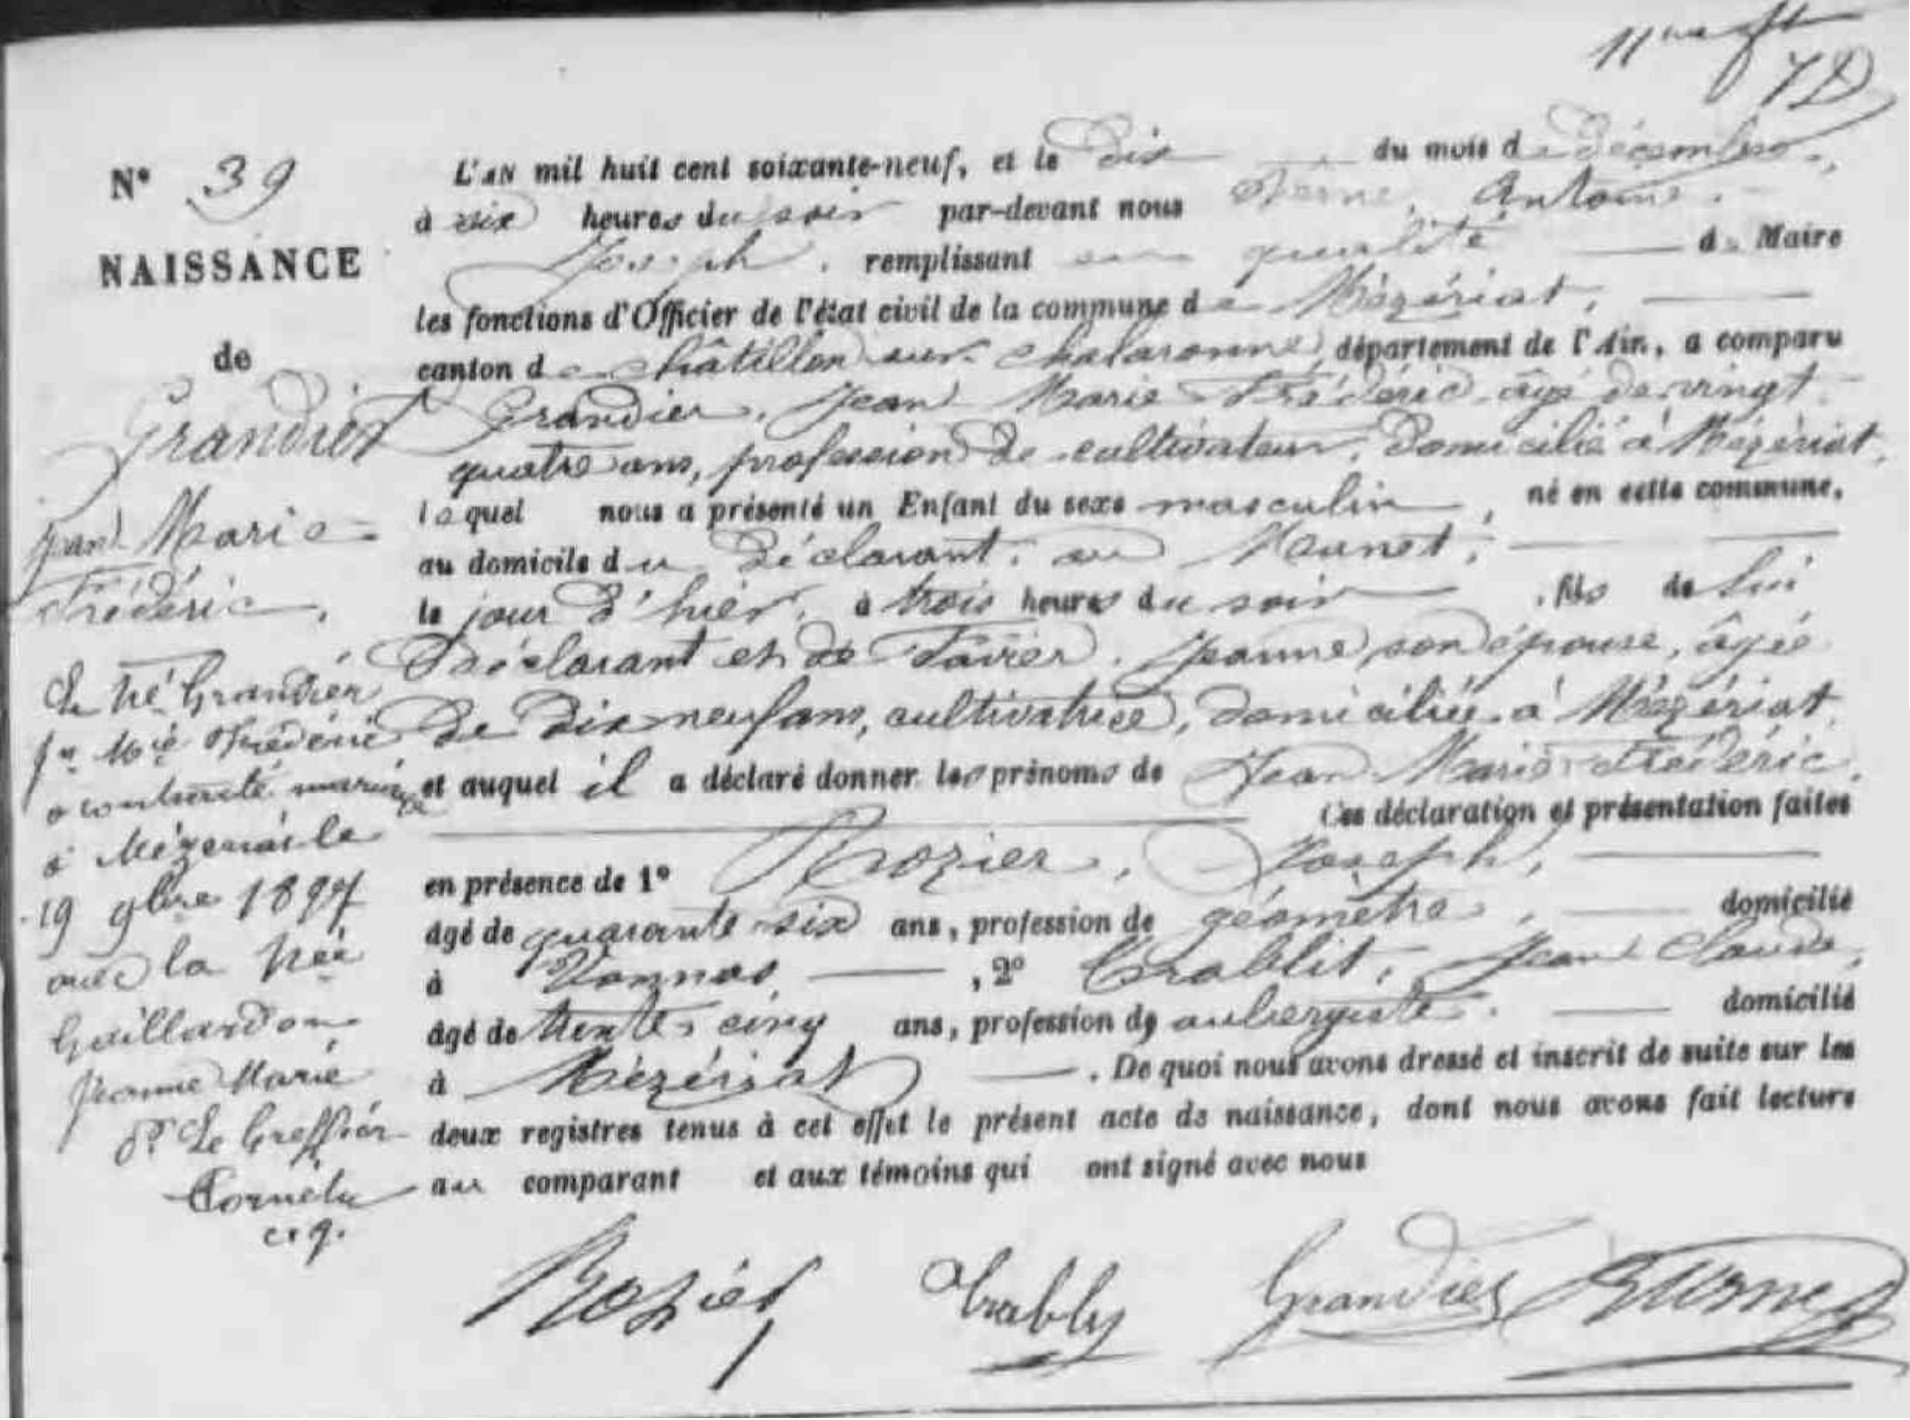 N° 39
NAISSANCE
de
Grandier
Jean Marie
Frédéric,
Le né Grandier
Jn Mie Frédéric
a contracté mariage
à Mézériat le
19 9bre 1894
avec la née
Guillardon
Jeanne Marie
Le Greffier
L'AN mil huit cent soixante-neuf, et le dix du mois de décembre,
à six heures du soir par-devant nous Antoine
Joseph, remplissant en qualité de Maire
les fonctions d'Officier de l'état civil de la commune de Mézériat,
canton de Châtillon sur Chalaronne, département de l'Ain, a comparu
Grandier, Jean Marie Frédéric âgé de vingt
quatre ans, profession de cultivateur, domicilié à Mézériat,
lequel nous a présenté un Enfant du sexe masculin, né en cette commune,
au domicile du déclarant, au
le jour d'hier, à trois heures du soir, fils de lui
déclarant et de Favier, Jeanne, son épouse, âgée
de dix neuf ans, cultivatrice, domiciliée à Mézériat,
et auquel il a déclaré donner les prénoms de Jean Marie Frédéric.
Ces déclaration et présentation faites
en présence de 1° Rozier, Joseph,
âgé de quarante six ans, profession de géomètre, domicilié
à Vonnas, 2° Chablit, Jean Claude,
âgé de trente cinq ans, profession de aubergiste. domicilié
à Mézériat. De quoi nous avons dressé et inscrit de suite sur les
deux registres tenus à cet effet le présent acte de naissance, dont nous avons fait lecture
au comparant et aux témoins qui ont signé avec nous
Rozier Grandier